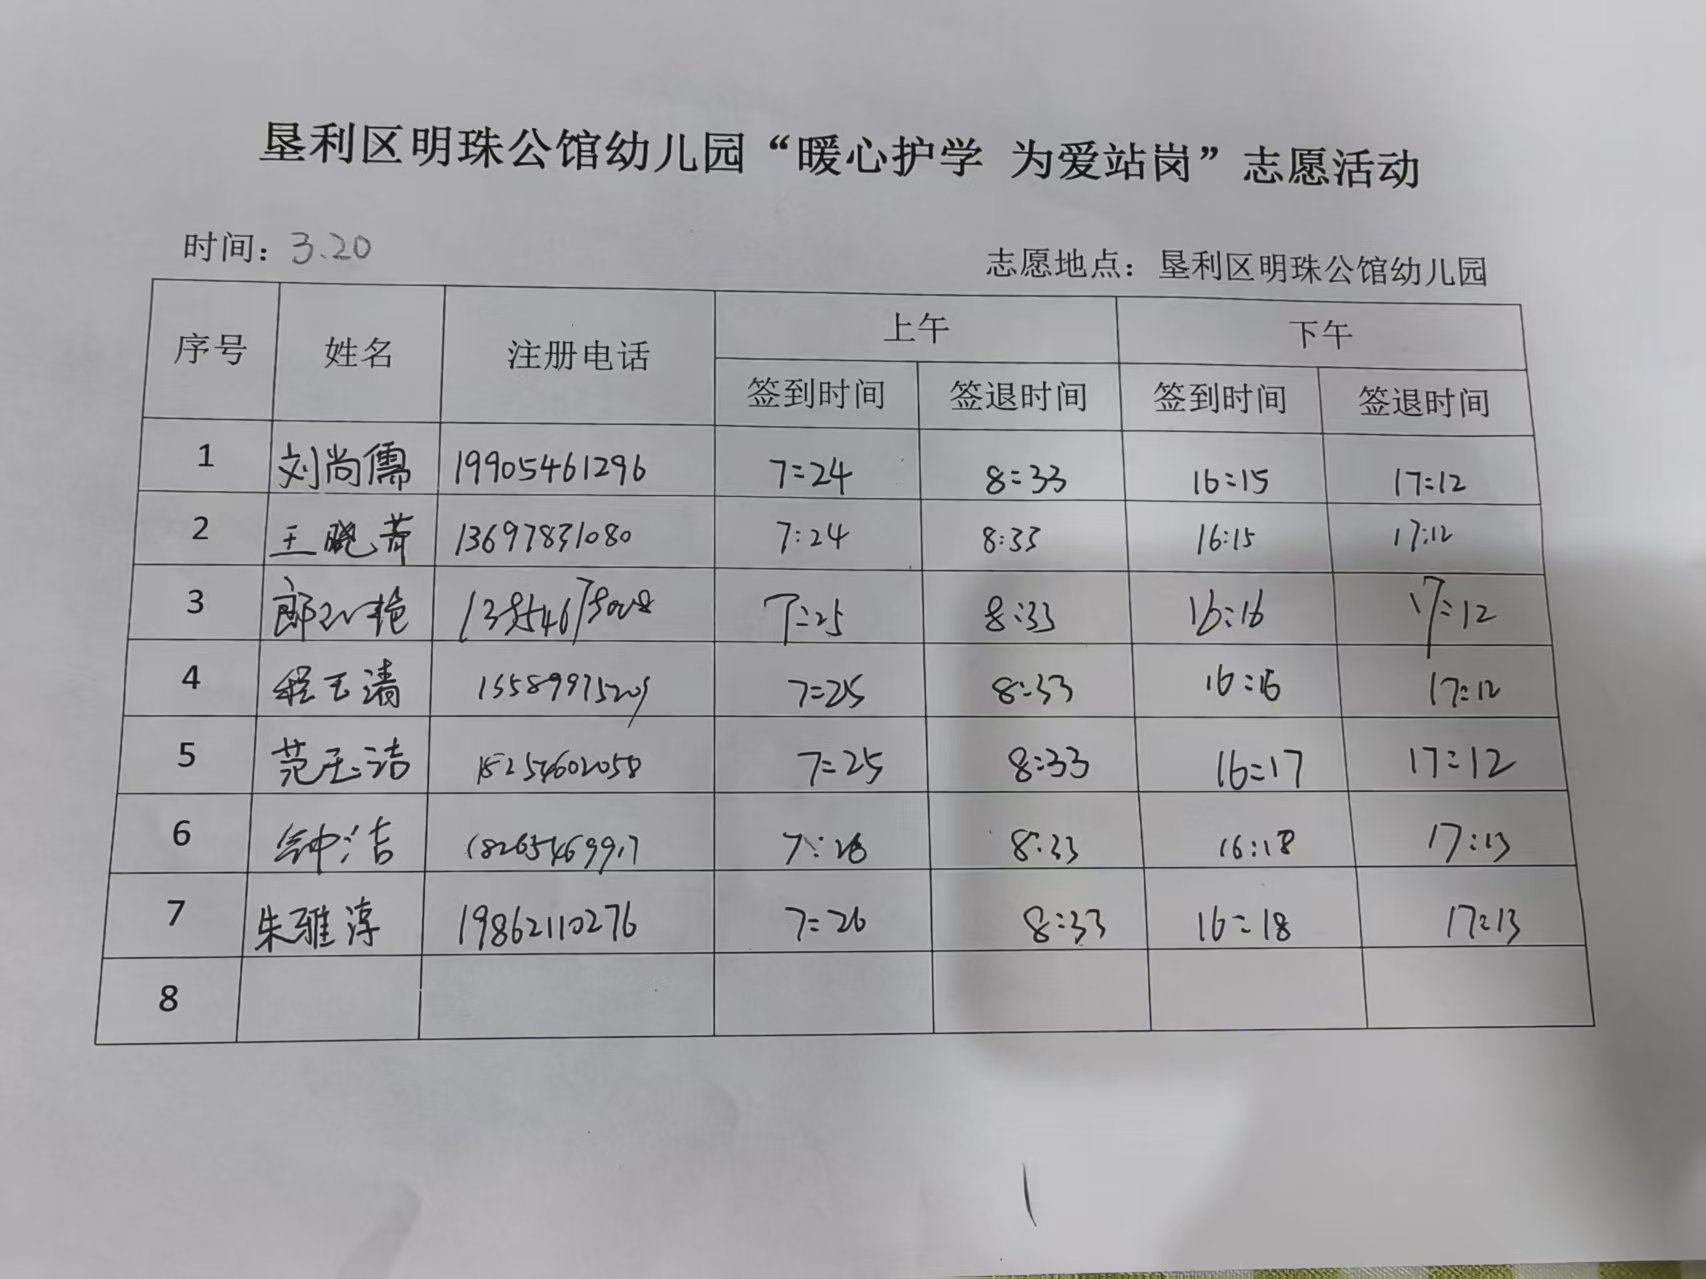 垦利区明珠公馆幼儿园“暖心护学 为爱站岗”志愿活动
时间：3.20 志愿地点：垦利区明珠公馆幼儿园
序号 姓名 注册电话 上午 下午
签到时间 签退时间 签到时间 签退时间
1 刘尚儒 19905461296 7:24 8:33 16:15 17:12
2 王晓菁 13697831080 7:24 8:33 16:15 17:12
3 7:25 8:33 16:16 17:12
4 程玉清 7:25 8:33 16:16 17:12
5 范玉洁 15254602058 7:25 8:33 16:17 17:12
6 钟洁 18265469917 7:26 8:33 16:18 17:13
7 朱雅淳 19862110276 7:26 8:33 16:18 17:13
8